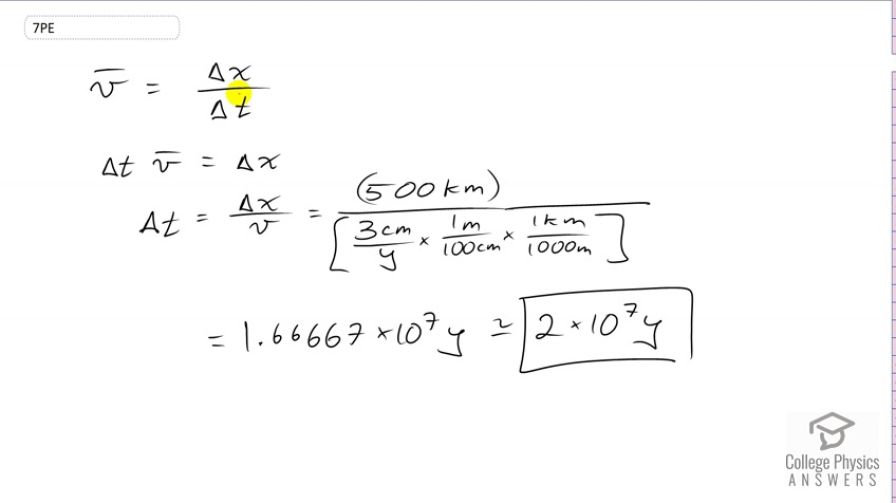 7PE
v̅ = Δx/Δt
Δt v̅ = Δx
Δt = Δx/v = (500km)/[3cm/y × 1m/100cm × 1km/1000m]
= 1.66667 × 10⁷ y ≃ 2 × 10⁷ y
College Physics
ANSWERS